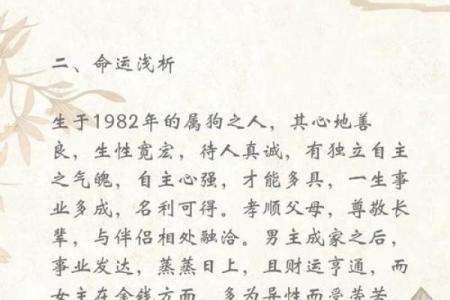 二、命运浅析
生于1982年的属狗之人，其心地善
良，生性宽宏，待人真诚，有独立自主
之气魄，自主心强，才能多具，一生事
业多成，名利可得。孝顺父母，尊敬长
辈，与伴侣相处融洽。男主成家之后，
事业发达，蒸蒸日上，且财运亨通，而
女主在金钱方面，多为异性而受劳苦